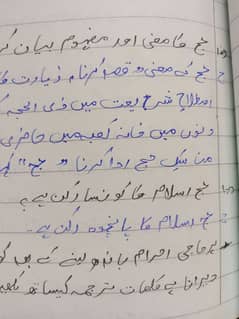 حج کا معنی اور مفہوم بیان کر
حج کے معنی و قصد کرنا، زیارت کا
اصطلاح شریعت میں ذی الحجہ ک
دنوں میں خانہ کعبہ میں حاضری
مناسک حج ادا کرنا "حج" کہ
حج اسلام کا کونسا رکن ہے؟
حج اسلام کا پانچواں رکن ہے۔
ہر حاجی احرام باندھ لینے کے بعد کو
دہراتا ہے کلمات ترجمہ کیساتھ لکھی